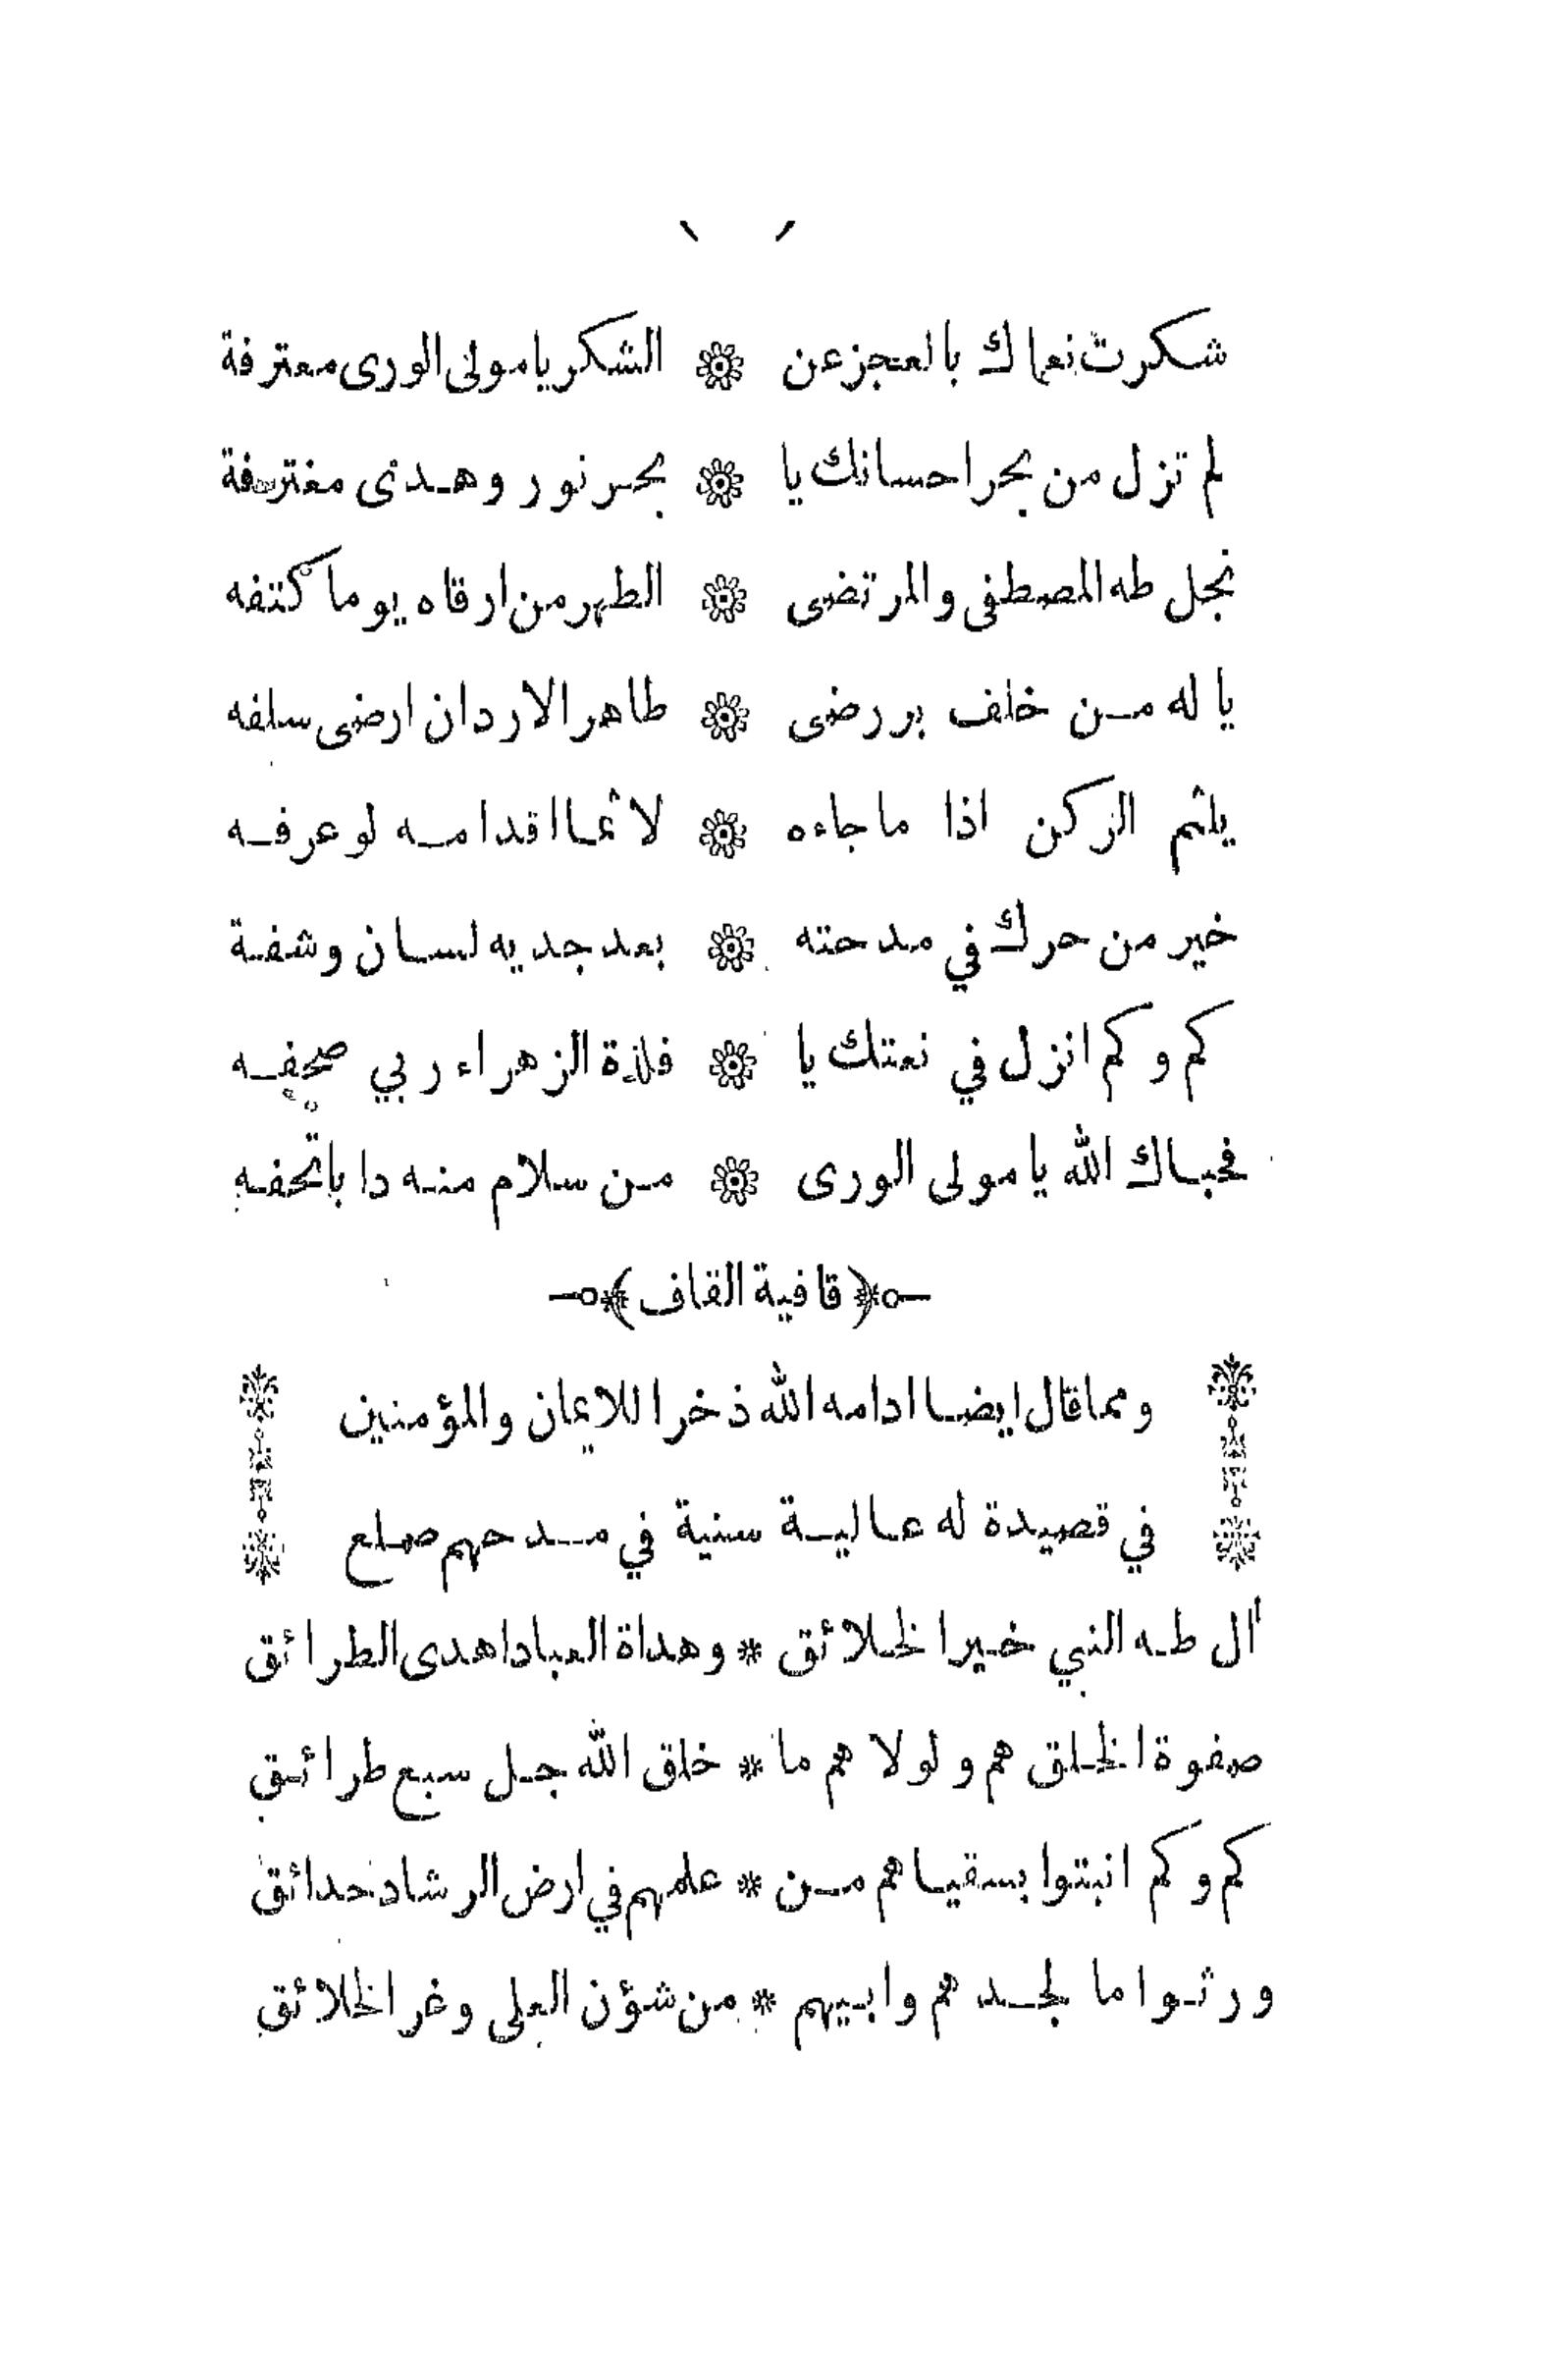 شكرت نعماك بالعجز عن * الشكر يا مولى الورى معترفة
لم تزل من بحر احسانك يا * بحر نور وهدى مغترفة
نجل طه المصطفى والمرتضى * الطهر من ارقاه يوما كتفه
يا له من خلف بر رضى * طاهر الاردان ارضى سلفه
يلثم الركن اذا ما جاءه * لاثما اقدامه لو عرفه
خير من حرك في مدحته * بعد جديه لسان وشفة
كم وكم انزل في نعتك يا * فلذة الزهراء ربي صحفه
فحباك الله يا مولى الورى * من سلام منه دابا تحفه
﴿قافية القاف﴾
ومما قال ايضا ادامه الله ذخرا للايمان والمؤمنين
في قصيدة له عالية سنية في مدحهم صلع
آل طه النبي خير الخلائق * وهداة العباد اهدى الطرائق
صفوة الخلق هم ولولا هم ما * خلق الله جل سبع طرائق
كم وكم انبتوا بسقياهم من * علمهم في ارض الرشاد حدائق
ورثوا ما لجدهم وابيهم * من شؤن العلى وغر الخلائق